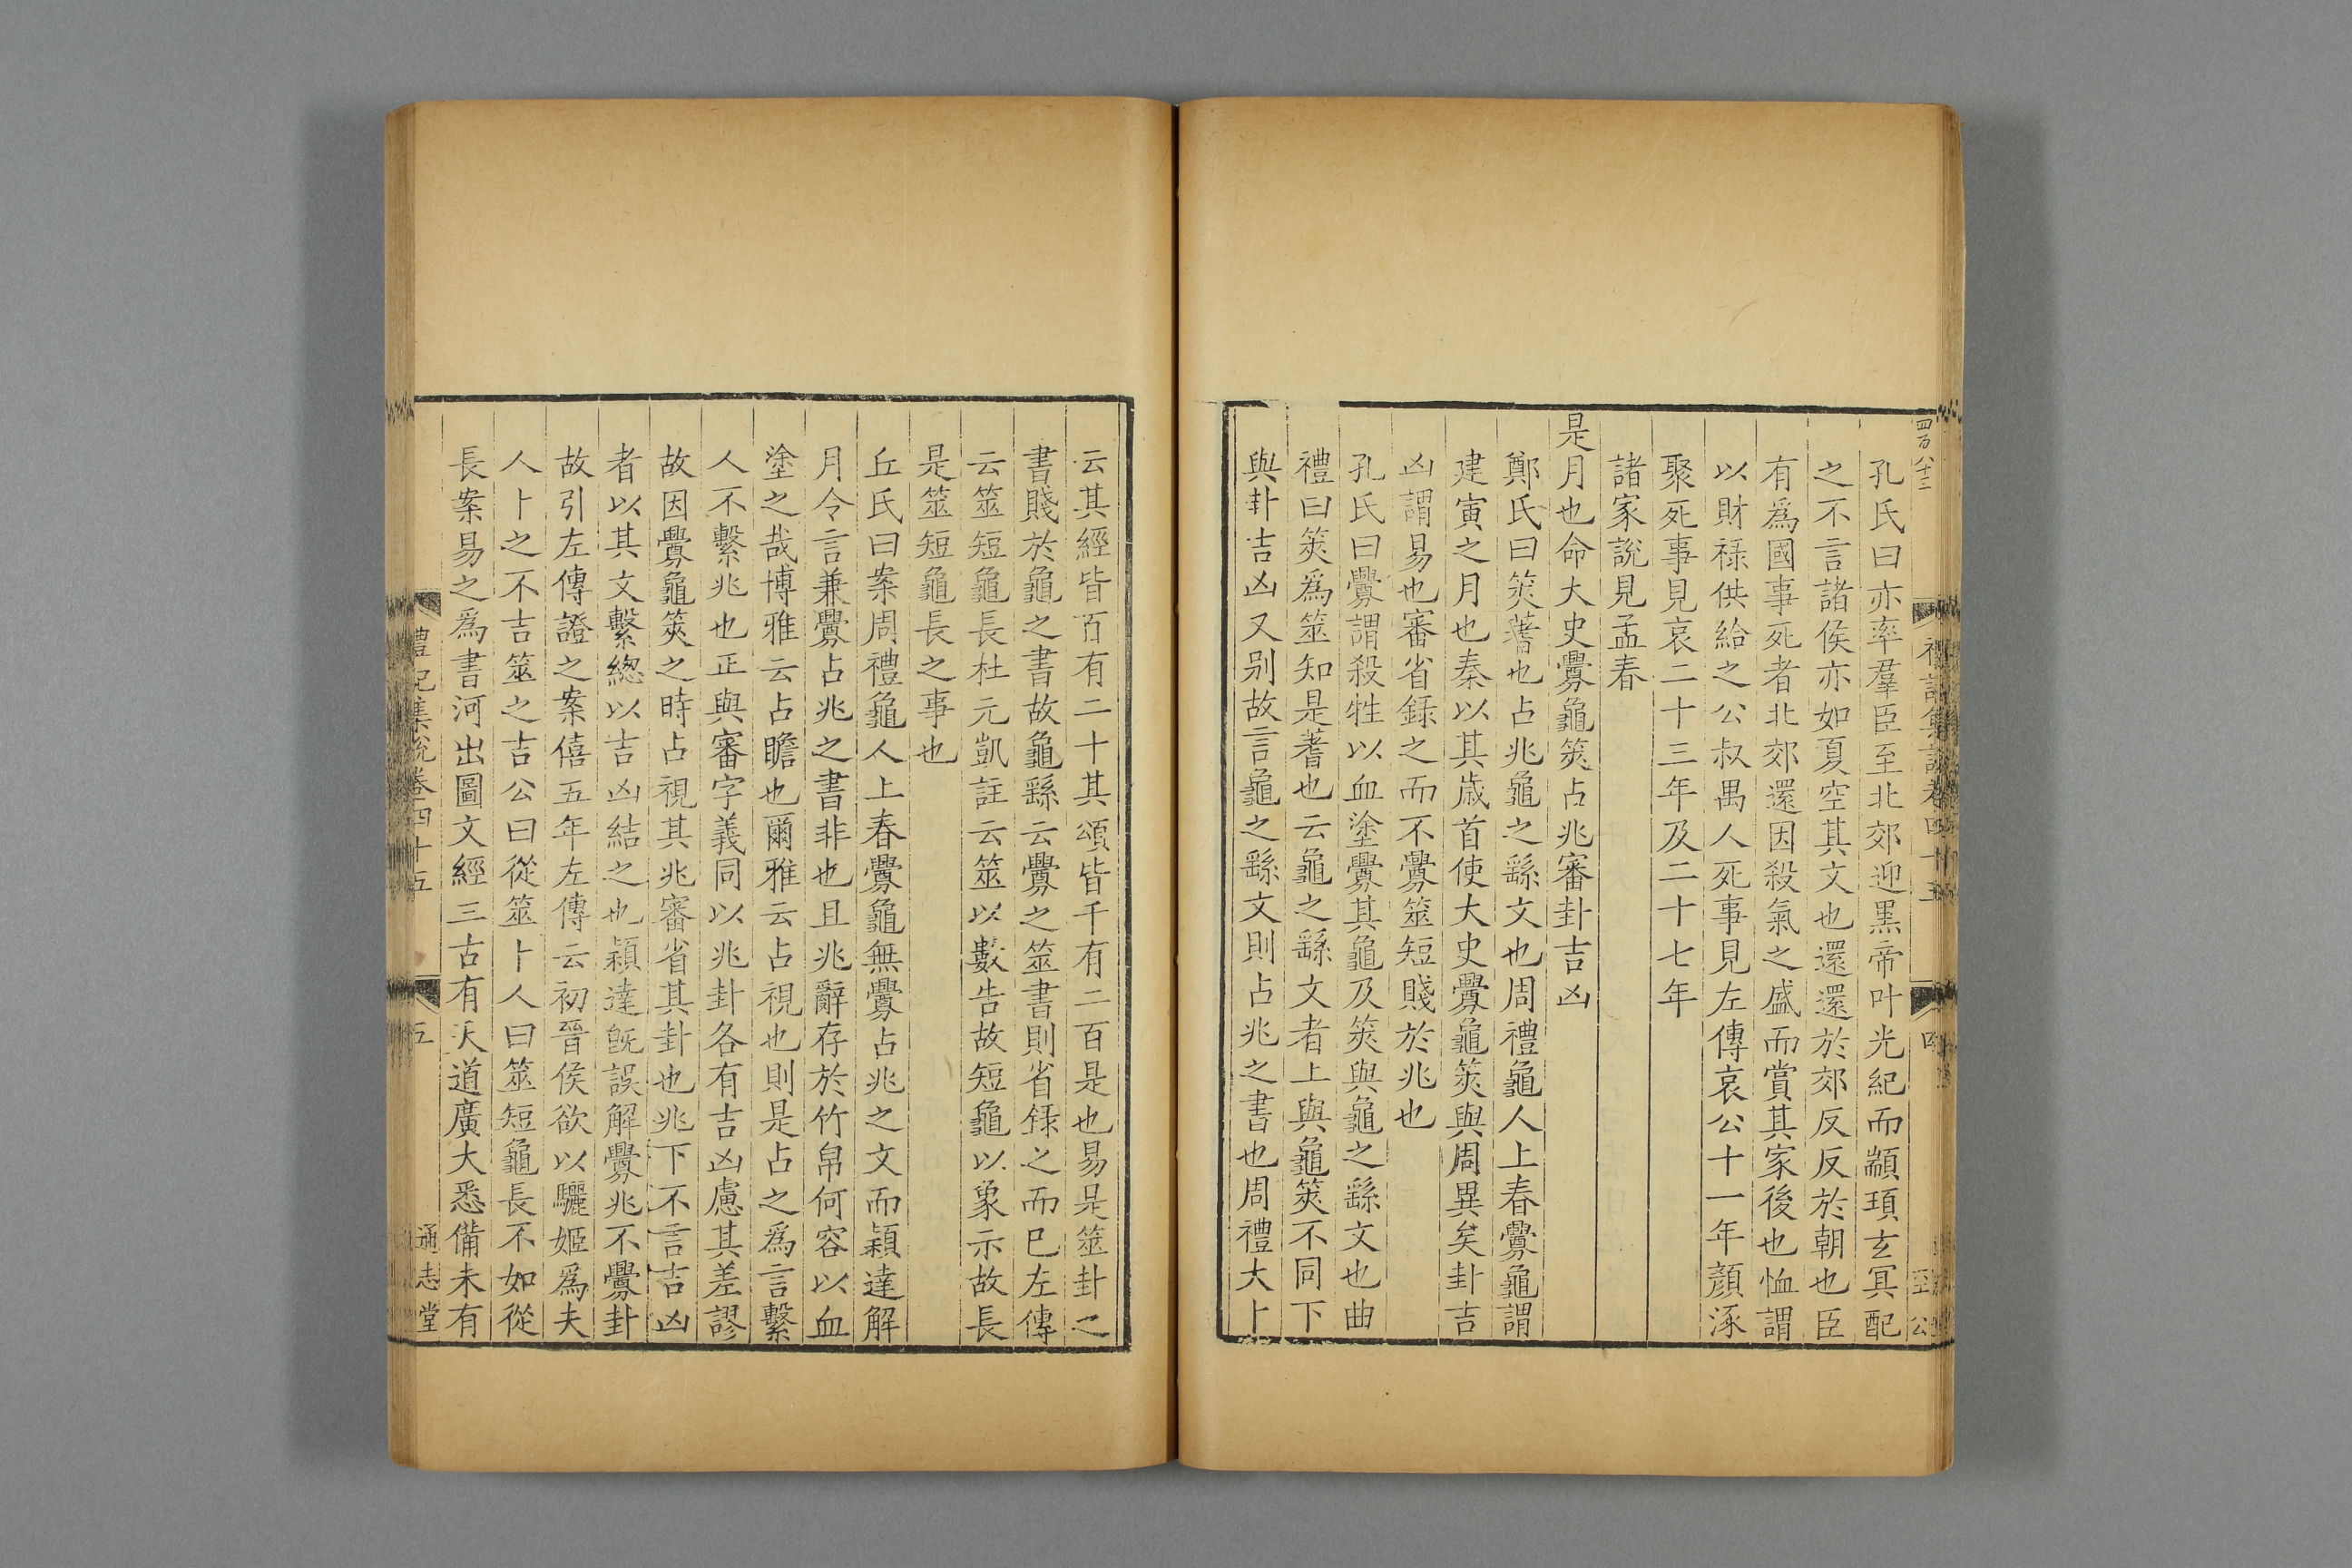 四百八十二
禮記集說卷四十五
四
孔氏曰亦率羣臣至北郊迎黑帝叶光紀而顓頊玄冥配
之不言諸侯亦如夏空其文也還還於郊反反於朝也臣
有爲國事死者北郊還因殺氣之盛而賞其家後也恤謂
以財祿供給之公叔禺人死事見左傳哀公十一年顏涿
聚死事見哀二十三年及二十七年
諸家說見孟春
是月也命大史釁龜筴占兆審卦吉凶
鄭氏曰筴蓍也占兆龜之繇文也周禮龜人上春釁龜謂
建寅之月也秦以其歲首使大史釁龜筴與周異矣卦吉
凶謂易也審省錄之而不釁筮短賤於兆也
孔氏曰釁謂殺牲以血塗釁其龜及筴與龜之繇文也曲
禮曰筴爲筮知是蓍也云龜之繇文者上與龜筴不同下
與卦吉凶又别故言龜之繇文則占兆之書也周禮大卜
云其經皆百有二十其頌皆千有二百是也易是筮卦之
書賤於龜之書故龜繇云釁之筮書則省錄之而已左傳
云筮短龜長杜元凱註云筮以數告故短龜以象示故長
是筮短龜長之事也
丘氏曰案周禮龜人上春釁龜無釁占兆之文而穎達解
月令言兼釁占兆之書非也且兆辭存於竹帛何容以血
塗之哉博雅云占瞻也爾雅云占視也則是占之爲言繫
人不繫兆也正與審字義同以兆卦各有吉凶慮其差謬
故因釁龜筴之時占視其兆審省其卦也兆下不言吉凶
者以其文繫緫以吉凶結之也穎達旣誤解釁兆不釁卦
故引左傳證之案僖五年左傳云初晉侯欲以驪姬爲夫
人卜之不吉筮之吉公曰從筮卜人曰筮短龜長不如從
長案易之爲書河出圖文經三古有天道廣大悉備未有
禮記集說卷四十五
五
通志堂